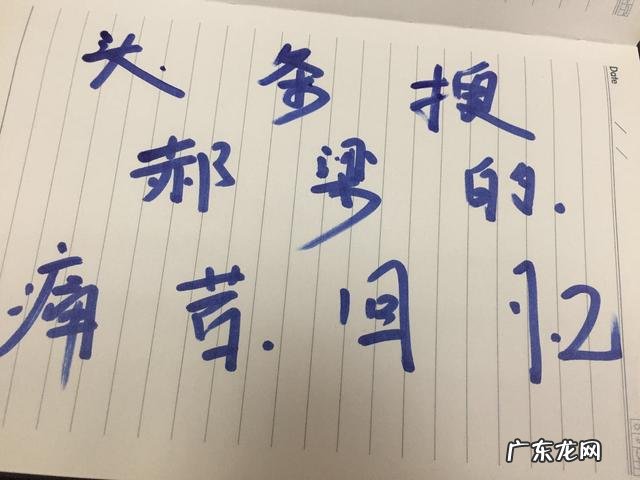 头条搜
郝梁的
痛苦回忆
Date
广东龙网